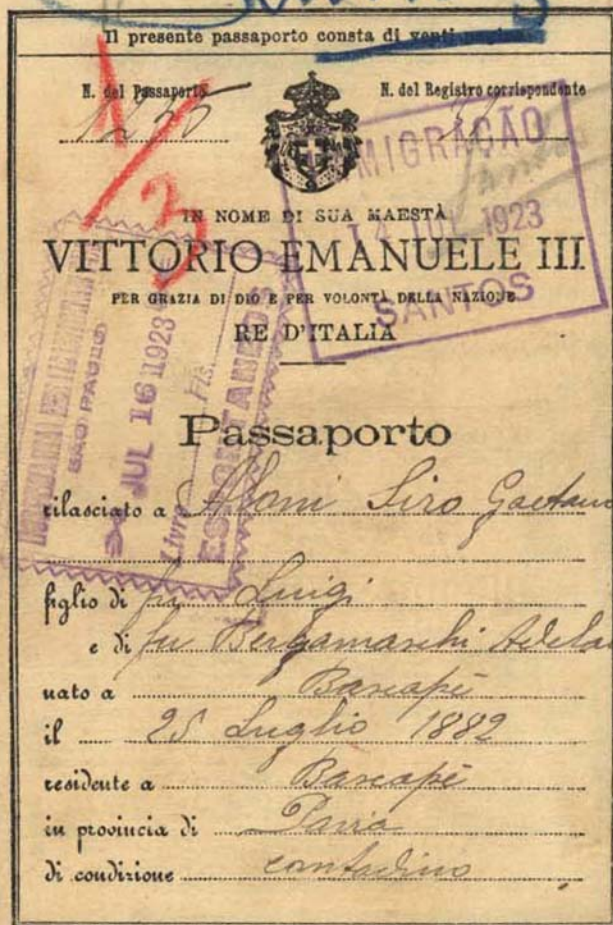 Il presente passaporto consta di venti pagine
N. del Passaporto
N. del Registro corrispondente
1235
1/3
IMIGRAÇÃO
14 JUL 1923
SANTOS
IN NOME DI SUA MAESTÀ
VITTORIO EMANUELE III
PER GRAZIA DI DIO E PER VOLONTÀ DELLA NAZIONE
RE D'ITALIA
SÃO PAULO
JUL 16 1923
Livro Fls.
ESPONTANEOS
Passaporto
rilasciato a Aloni Siro Gaetano
figlio di fu Luigi
e di fu Bergamaschi Adelai
nato a Bascapè
il 25 Luglio 1882
residente a Bascapè
in provincia di Pavia
di condizione contadino